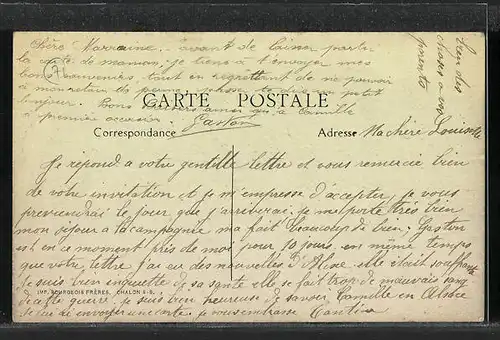 Chère Marraine. avant de laisser partir
la carte de maman, je tiens à t'envoyer mes
bons souvenirs, tout en regrettant de ne pouvoir
bonjour. Bons baisers ainsi qu'à Camille
à première occasion. Gaston
bien des
choses à vos
parents
71
CARTE POSTALE
Correspondance
Adresse Ma chère Louise
Je répond a votre gentille lettre et vous remercie bien
de votre invitation et je m'empresse d'accepter, je vous
previendrai le jour que j'arriverai. je me porte très bien
mon séjour a la campagne m'a fait beaucoup de bien; Gaston
est en ce moment près de moi pour 10 jours. en même temps
que votre lettre j'ai eu des nouvelles d'Aline elle était souffrante
je suis bien inquiette de sa santé elle se fait trop de mauvais sang
de cette guerre. je suis bien heureuse de savoir Camille en Alsace
IMP. BOURGEOIS FRÈRES, CHALON S-S.
de lui envoyer une carte. je vous embrasse